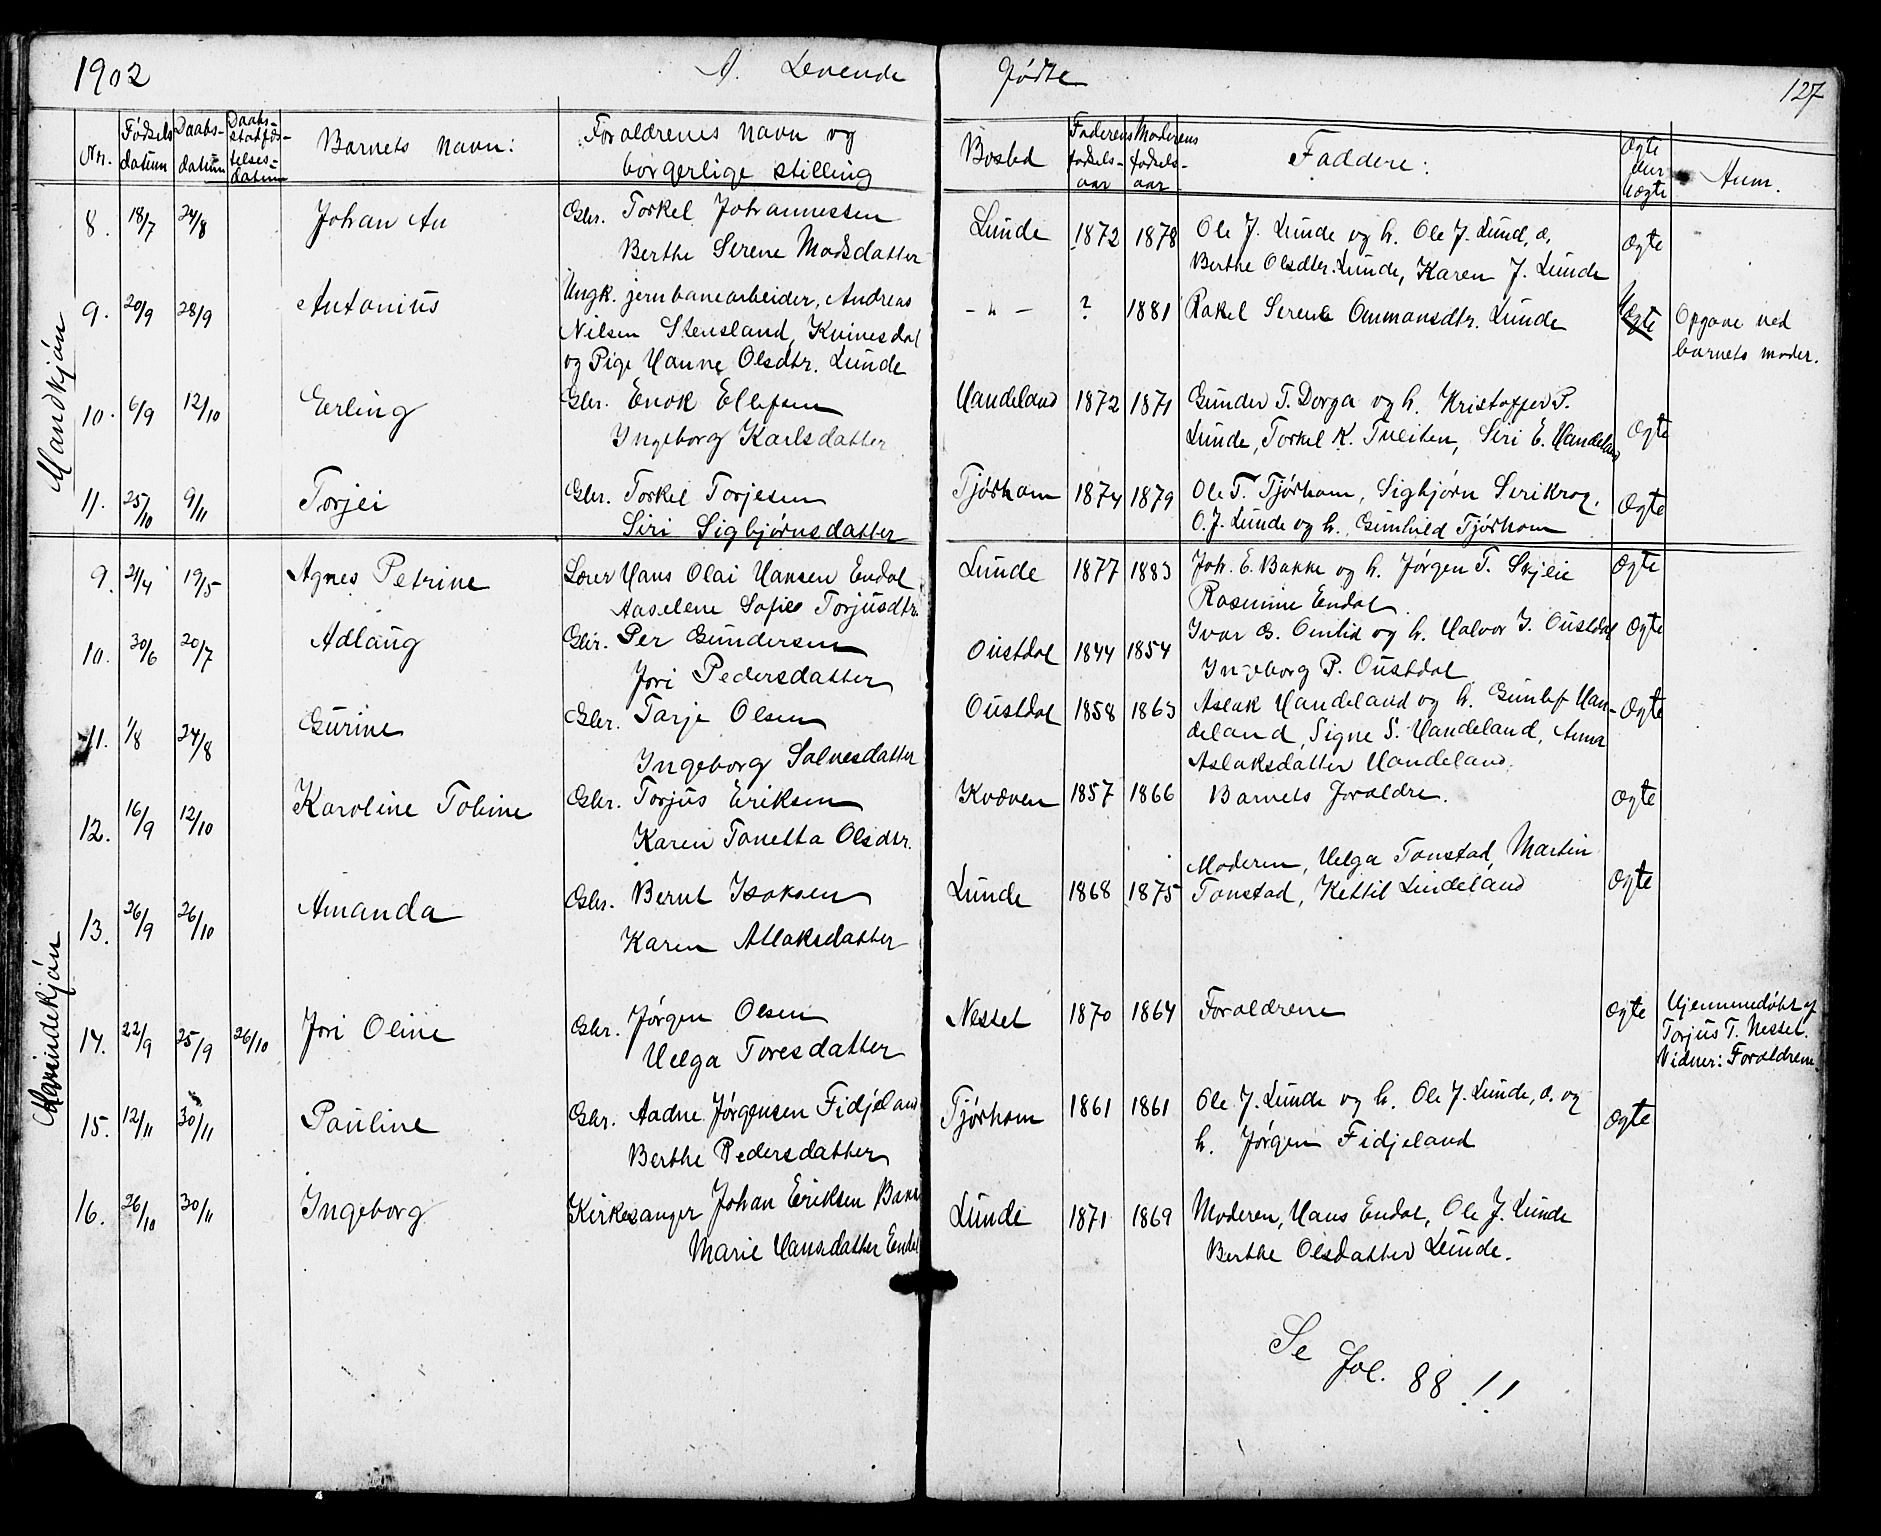 1902 A. Levende fødte 127
Nr. Fødsels datum Daabs- datum Daabs- stadfæs- telses- datum Barnets navn: Forældrenes navn og borgerlige stilling Bosted Faderens fødsels- aar Moderens fødsels- aar Faddere: Ægte eller Uægte Anm.
Mandkjøn
8. 18/7 24/8 Johan An Gbr. Torkel Johannessen Lunde 1872 1878 Ole J. Lunde og h. Ole J. Lund, æ. Ægte
Berthe Serene Madsdatter Berthe Olsdtr. Lunde, Karen J. Lunde
9. 20/9 28/9 Antonius Ungk. jernbanearbeider, Andreas - " - ? 1881 Rakel Serene Ommansdtr. Lunde Uægte Opgave ved
Nilsen Stensland, Kvinesdal barnets moder.
og Pige Hanne Olsdtr. Lunde
10. 6/9 12/10 Erling Gbr. Enok Ellefsen Handeland 1872 1871 Gunder T. Dorga og h. Kristoffer P. Ægte
Ingeborg Karlsdatter Lunde, Torkel K. Tveiten, Siri E. Handeland
11. 25/10 9/11 Torjei Gbr. Torkel Torjesen Tjørhom 1874 1879 Ole T. Tjørhom, Sigbjørn Serikrog, Ægte
Siri Sigbjørnsdatter O. J. Lunde og h. Gunhild Tjørhom
Qvindekjøn
9. 21/4 19/5 Agnes Petrine Lærer Hans Olai Hansen Endal Lunde 1877 1883 Joh. E. Bakke og h. Jørgen T. Skjeie Ægte
Aaselene Sofie Torjusdtr. Rasmine Endal
10. 30/6 20/7 Adlaug Gbr. Per Gundersen Oustdal 1844 1854 Ivar G. Omlid og h. Halvor I. Oustdal Ægte
Jori Pedersdatter Ingeborg P. Oustdal
11. 1/8 24/8 Gurine Gbr. Tarje Olsen Oustdal 1858 1863 Aslak Handeland og h. Gunlef Han- Ægte
Ingeborg Salvesdatter deland, Signe S. Handeland, Anna
Aslaksdatter Handeland.
12. 16/9 12/10 Karoline Tobine Gbr. Torjus Eriksen Kvæven 1857 1866 Barnets forældre. Ægte
Karen Tonetta Olsdtr.
13. 26/9 26/10 Amanda Gbr. Bernt Isaksen Lunde 1868 1875 Moderen, Helga Tonstad, Martin Ægte
Karen Atlaksdatter Tonstad, Kettil Lindeland
14. 22/9 25/9 26/10 Jori Oline Gbr. Jørgen Olsen Nesset 1870 1864 Forældrene Ægte Hjemmedøbt af
Helga Toresdatter Torjus T. Nesset.
Vidner: Forældrene
15. 12/11 30/11 Pauline Gbr. Aadne Jørgensen Fidjeland Tjørhom 1861 1861 Ole J. Lunde og h. Ole J. Lunde, æ. og Ægte
Berthe Pedersdatter h. Jørgen Fidjeland
16. 26/10 30/11 Ingeborg Kirkesanger Johan Eriksen Lunde 1871 1869 Moderen, Hans Endal, Ole J. Lunde
Marie Hansdatter Endal Berthe Olsdatter Lunde.
Se fol. 88!!